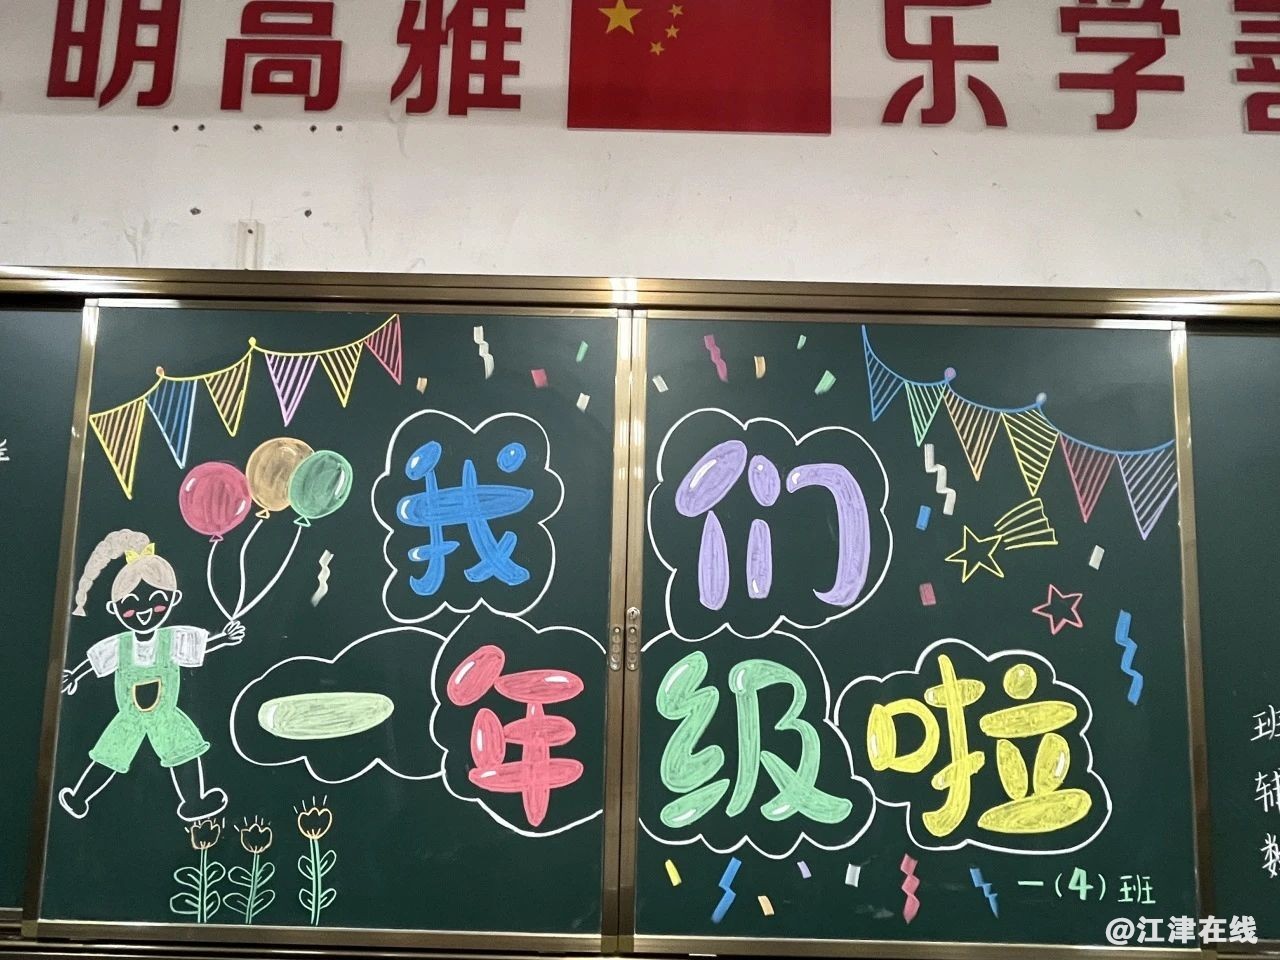 明高雅 乐学善
我们
一年级啦
一（4）班
班
数
@江津在线